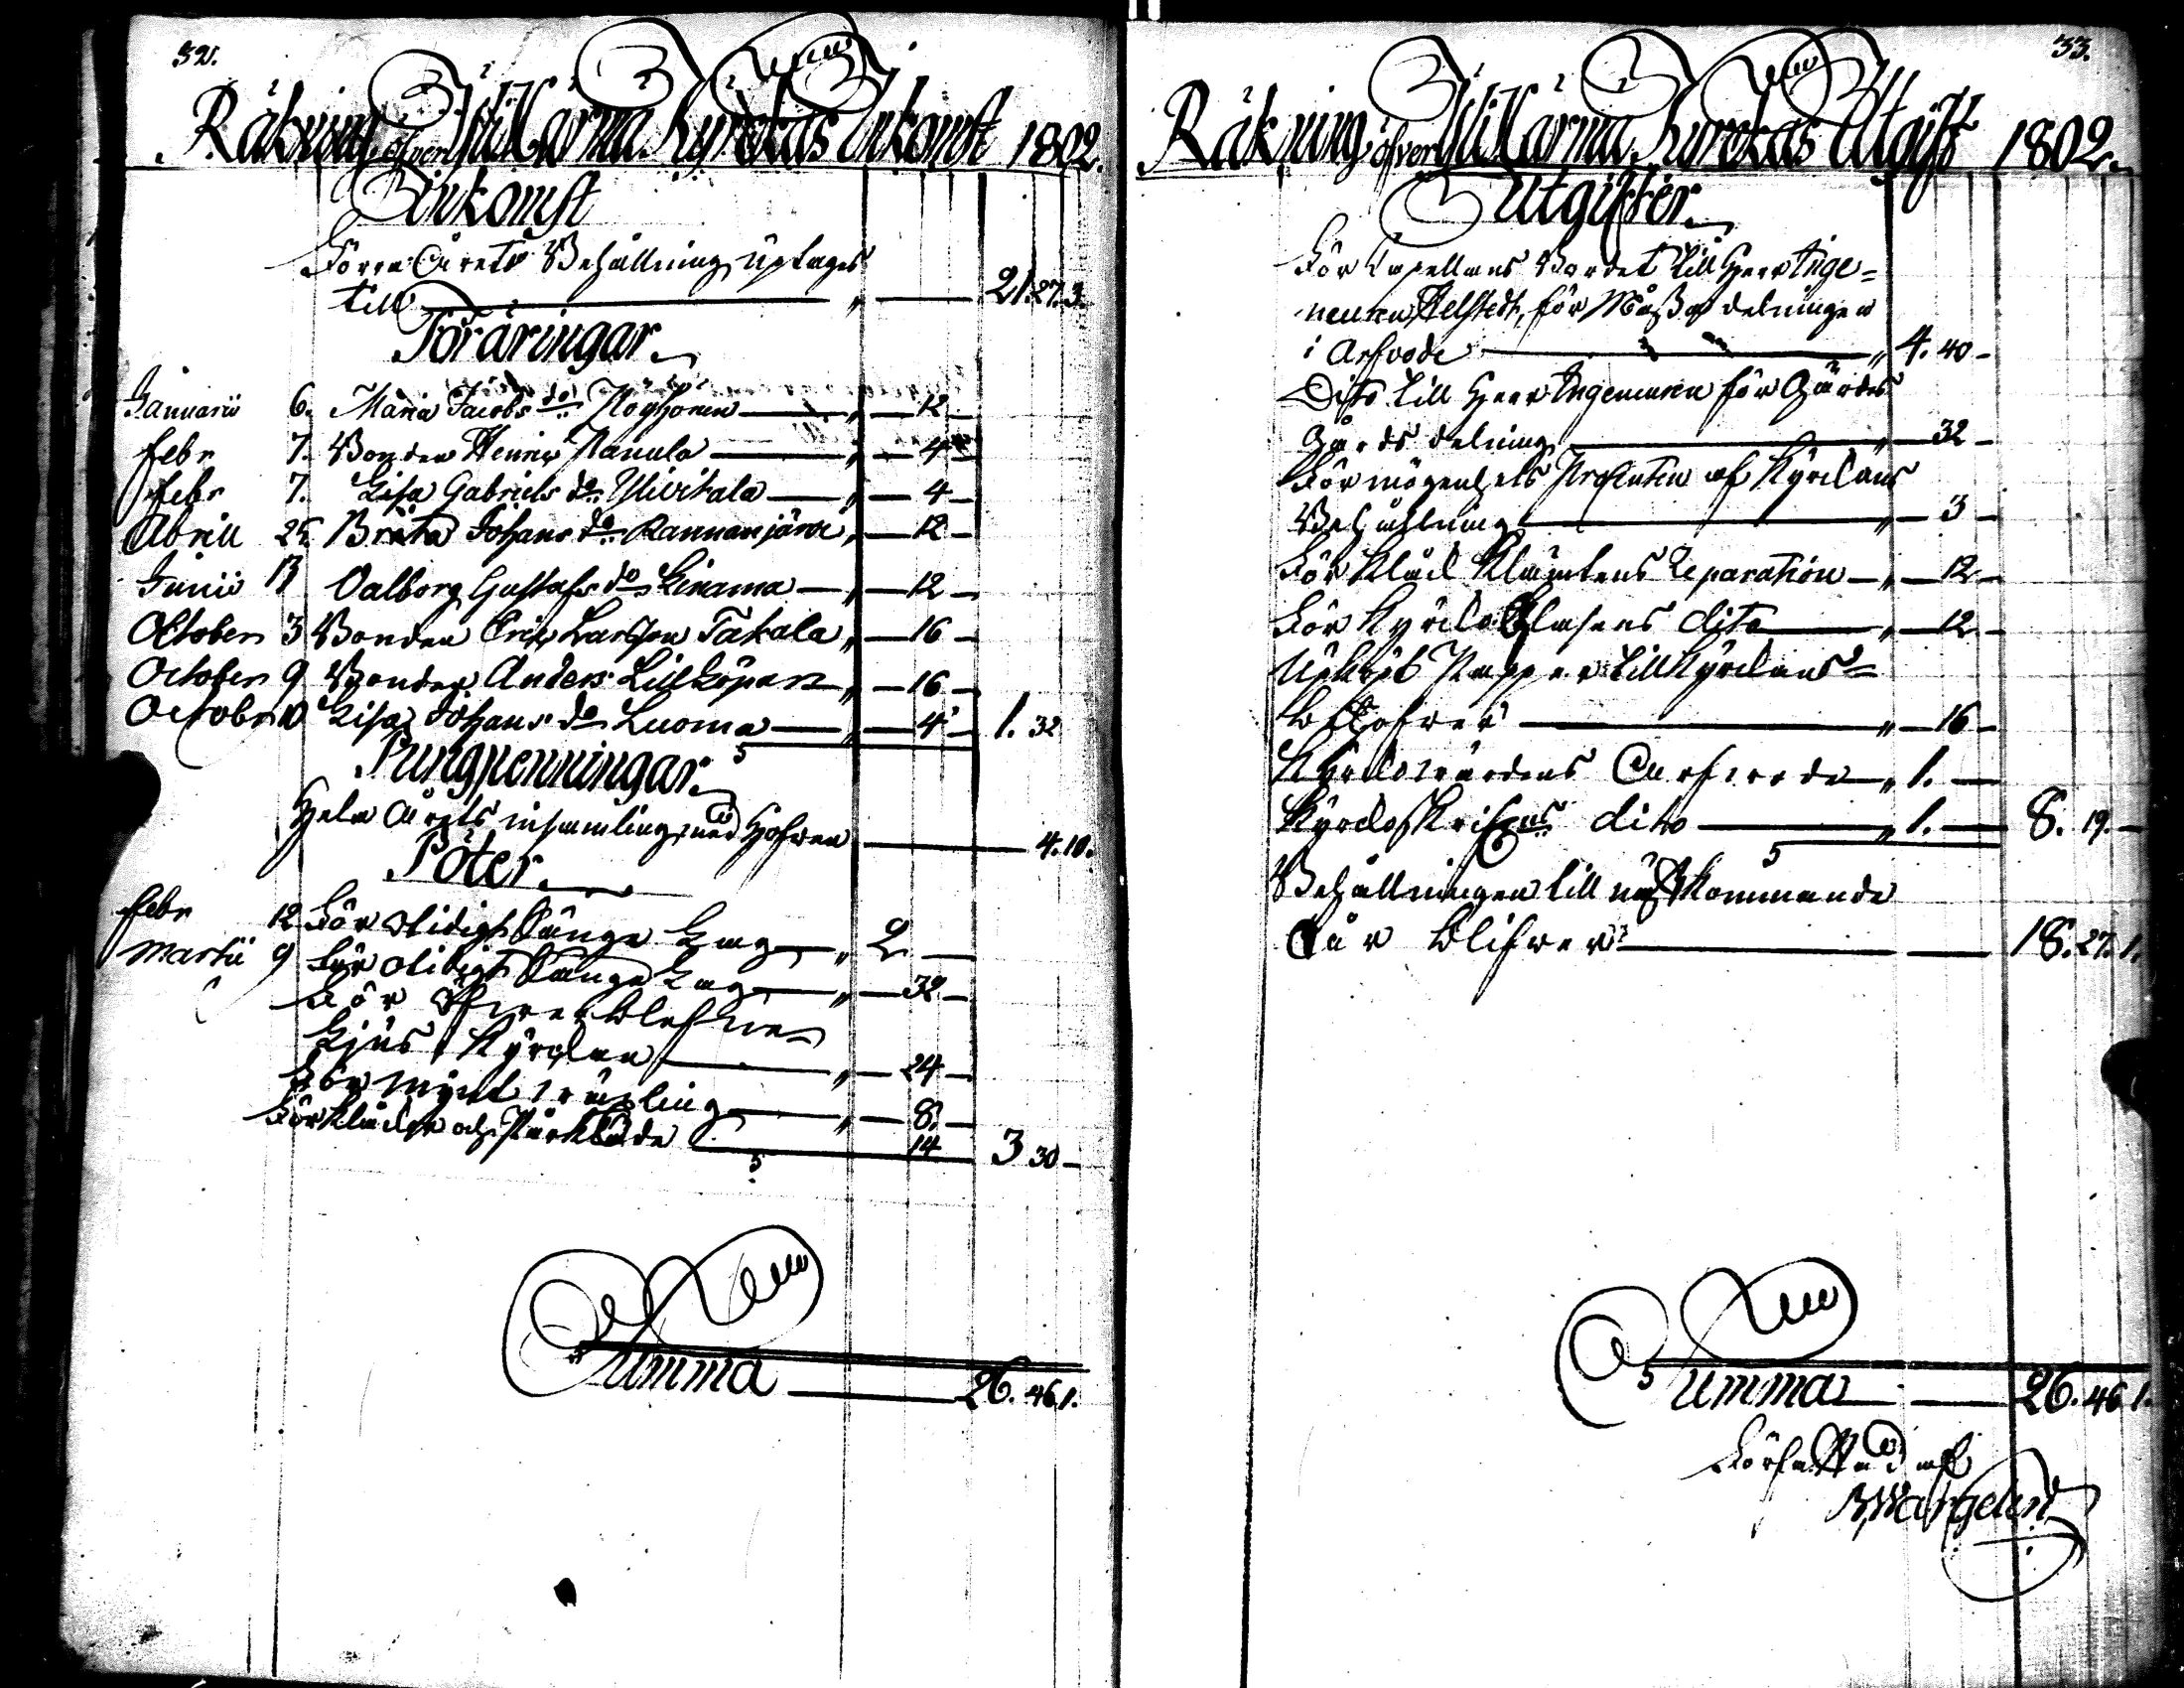 32.
Räkning öfver Ylistaro Kyrckas Inkomst 1802.
Inkomst
Förra Årets Behållning uptages
till 21.27.3.
Föräringar.
Januarii 6. Maria Jacobs dr 12
Febr 7. Bonden Henric Nanula 4
Febr 7. Lisa Gabriels dr Ylivitala 4
Abrill 25. Brita Johans dr Rannanjärvi 12
Junii 13 Valborg Gustafs dr Linama 12
October 3 Bonden Eric Larsson Takala 16
October 9 Bonden Anders Lillköpar 16
October 10 Lisa Johans dr Luoma 4 1. 32
Pungpenningar.
Hela Årets insamling med Hofven 4.10.
Böter.
Febr 12 För otidigt Sänge Lag 2
Martii 9 För otidigt Sänge Lag 32
För
Ljus i Kyrckan 24
För mynt växling 8.
För kläder och Bårkläde 14 3 30
Summa 26. 46 1.
33.
Räkning öfver Kyrckas Utgift 1802.
Utgifter.
För Capellans Bordet till Herr Inge=
neuren Helstedt, för delningen
i Arfvode 4. 40
Dito till Herr Ingeneuren för Gärdes
Gårds delning 32
Förmögenhets Procenten af Kyrckans
Behållning 3
För Kläck Klämtens Reparation 12
För Kyrcko dito 12
Upköpt Papper till Kyrckans
behofver 16
Kyrckovärdens Arfvode 1.
Kyrckoskrifvens dito 1. 8. 19.
Behållningen till nästkommande
År blifver 18.27.1.
Summa 26. 46 1.
Författad af